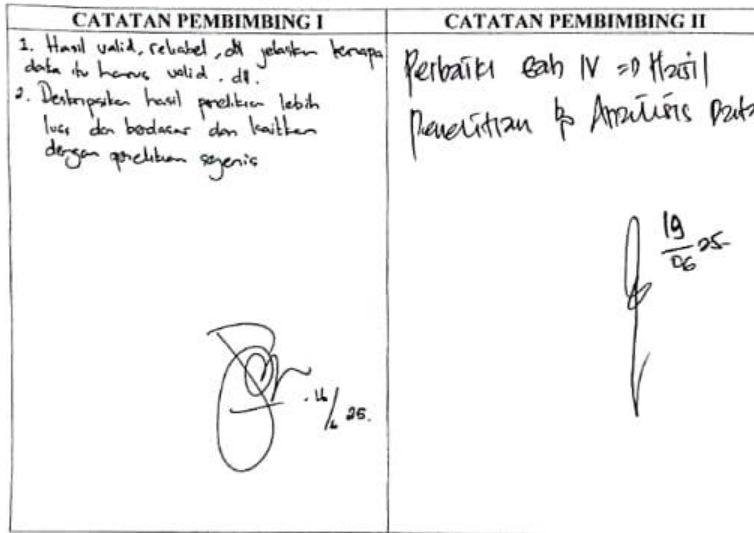 CATATAN PEMBIMBING I
1. Hasil valid, reliabel, dll jelaskan kenapa
data itu harus valid. dll.
2. Deskripsikan hasil penelitian lebih
luas dan berdasar dan kaitkan
dengan penelitian sejenis
25.
CATATAN PEMBIMBING II
Perbaiki Bab IV => Hasil
Penelitian & Analisis Data
19
06 25